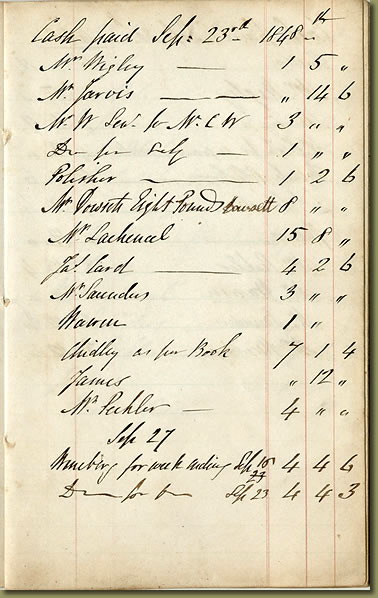 Cash paid Sep: 23rd 1848
Mr Wigley — 1 5 "
Mr Jarvis — — " 14 6
Mr W Senr for Mr C W 3 " "
Do for Self — 1 " "
Polisher — 1 2 6
Mr Dowsett Eight Pounds Dowsett 8 " "
Mr Lachenal 15 8 "
Jas Card — 4 2 6
Mr Saunders 3 " "
Warren 1 "
Chidley as per Book 7 1 4
James " 12 "
Mr Pechler — 4 " "
Sep 27
for week ending Sep 16 4 4 6
Do for Do Sep 23 4 4 3